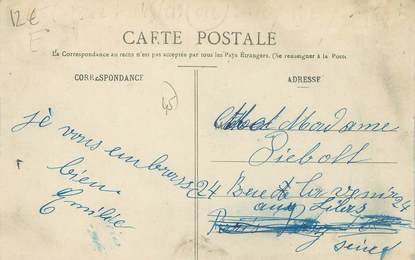 12€
E
CARTE POSTALE
La Correspondance au recto n'est pas acceptée par tous les Pays Étrangers. (Se renseigner à la Poste)
CORRESPONDANCE
je vous embrasse
bien
Emilie
ADRESSE
Madame
Siebolt
24 Rue de l'avenir 24
aux Lilas
Seine